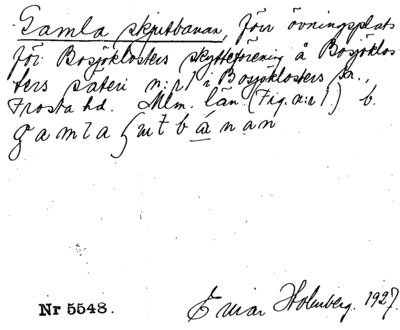 Gamla skjutbanan, förr övningsplats
för Bosjöklosters skytteförening å Bosjöklos-
ters säteri n:r 1 i Bosjöklosters sn.,
Frosta hd. Mlm. län (Fig. a:r 1.) b.
gamla ʃutbánan
Nr 5548.
Einar Holmberg. 1927.